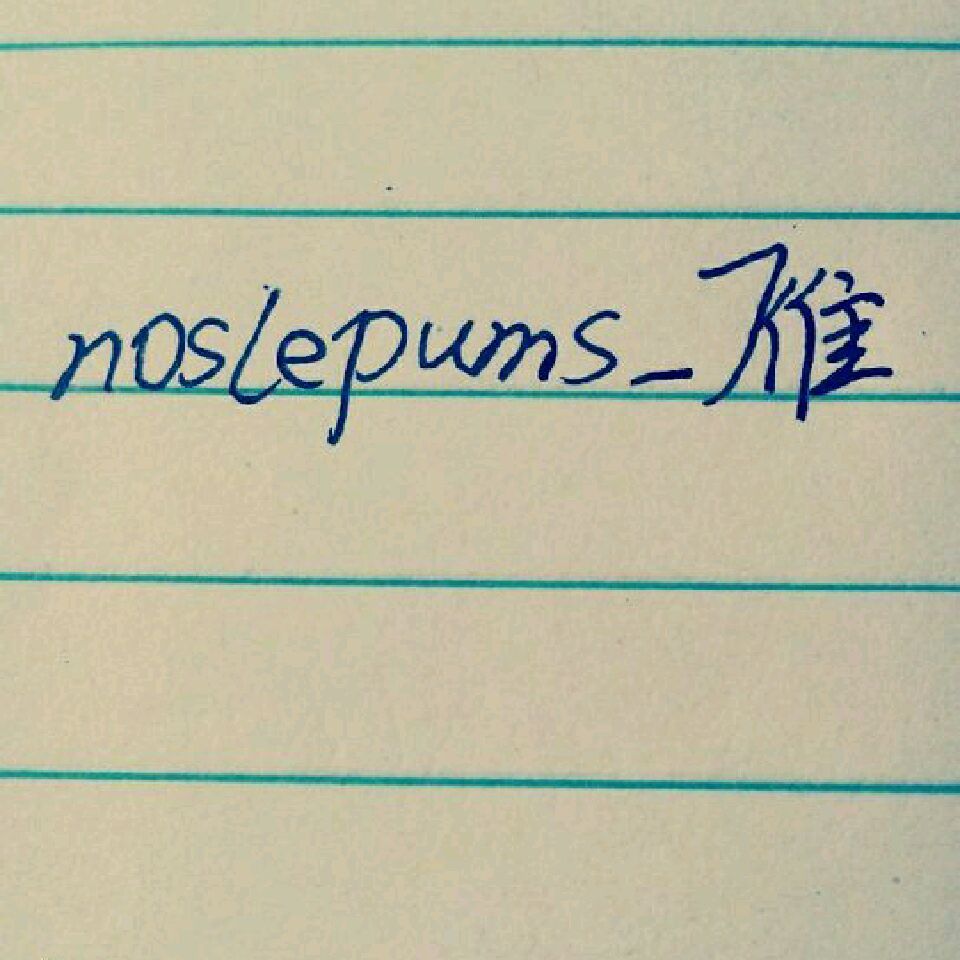 noslepums_雁